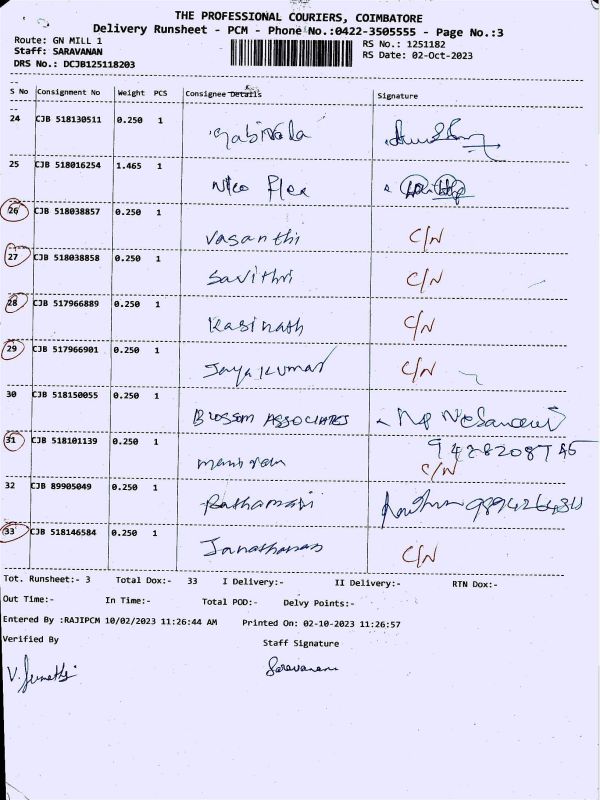 THE PROFESSIONAL COURIERS, COIMBATORE
Delivery Runsheet - PCM - Phone No.:0422-3505555 - Page No.:3
Route: GN MILL 1 RS No.: 1251182
Staff: SARAVANAN RS Date: 02-Oct-2023
DRS No.: DCJB125118203
S No Consignment No Weight PCS Consignee Details Signature
24 CJB 518130511 0.250 1
25 CJB 518016254 1.465 1 Nico Flex
26 CJB 518038857 0.250 1 Vasanthi C/N
27 CJB 518038858 0.250 1 Savithri C/N
28 CJB 517966889 0.250 1 Kasinath C/N
29 CJB 517966901 0.250 1 Jayakumar C/N
30 CJB 518150055 0.250 1 BLOSSOM ASSOCIATES
31 CJB 518101139 0.250 1 C/N
32 CJB 89905049 0.250 1
33 CJB 518146584 0.250 1 C/N
Tot. Runsheet:- 3 Total Dox:- 33 I Delivery:- II Delivery:- RTN Dox:-
Out Time:- In Time:- Total POD:- Delvy Points:-
Entered By :RAJIPCM 10/02/2023 11:26:44 AM Printed On: 02-10-2023 11:26:57
Verified By Staff Signature
Saravanan